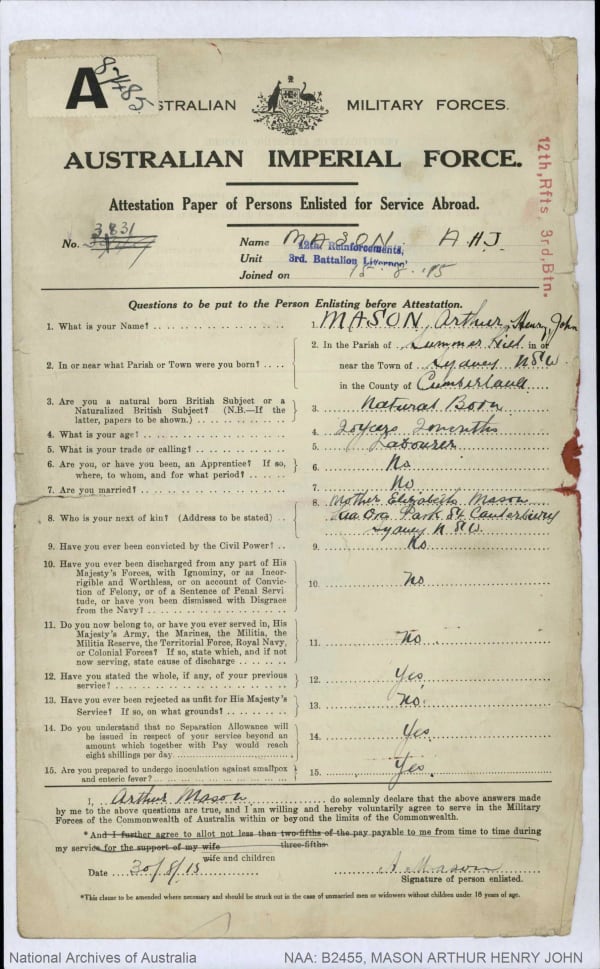 A 87485
STRALIAN MILITARY FORCES.
AUSTRALIAN IMPERIAL FORCE.
12th, Rfts, 3rd, Btn.
Attestation Paper of Persons Enlisted for Service Abroad.
No. 3831 Name MASON A.H.J.
Unit 12th Reinforcements,
3rd. Battalion Liverpool
Joined on 15.8.15
Questions to be put to the Person Enlisting before Attestation.
1. What is your Name? 1. MASON Arthur, Henry, John
2. In or near what Parish or Town were you born? 2. In the Parish of Summer Hill in or
near the Town of Sydney NSW
in the County of Cumberland
3. Are you a natural born British Subject or a
Naturalized British Subject? (N.B.—If the
latter, papers to be shown.) 3. Natural Born
4. What is your age? 4. 20years 2months
5. What is your trade or calling? 5. Labourer
6. Are you, or have you been, an Apprentice? If so,
where, to whom, and for what period? 6. No
7. Are you married? 7. No
8. Who is your next of kin? (Address to be stated) 8. Mother Elizabeth Mason
Park St Canterbury
Sydney N.S.W.
9. Have you ever been convicted by the Civil Power? 9. No
10. Have you ever been discharged from any part of His
Majesty's Forces, with Ignominy, or as Incor-
rigible and Worthless, or on account of Convic-
tion of Felony, or of a Sentence of Penal Servi
tude, or have you been Dismissed with Disgrace
from the Navy? 10. No
11. Do you now belong to, or have you ever served in, His
Majesty's Army, the Marines, the Militia, the
Militia Reserve, the Territorial Force, Royal Navy,
or Colonial Forces? If so, state which, and if not
now serving, state cause of discharge 11. No
12. Have you stated the whole, if any, of your previous
service? 12. Yes
13. Have you ever been rejected as unfit for His Majesty's
Service? If so, on what grounds? 13. No.
14. Do you understand that no Separation Allowance will
be issued in respect of your service beyond an
amount which together with Pay would reach
eight shillings per day 14. Yes
15. Are you prepared to undergo inoculation against smallpox
and enteric fever? 15. Yes.
I, Arthur Mason do solemnly declare that the above answers made
by me to the above questions are true, and I am willing and hereby voluntarily agree to serve in the Military
Forces of the Commonwealth of Australia within or beyond the limits of the Commonwealth.
*And I further agree to allot not less than two-fifths of the pay payable to me from time to time during
three-fifths
my service for the support of my wife
wife and children
Date 30/8/15 A. Mason
Signature of person enlisted.
*This clause to be amended where necessary and should be struck out in the case of unmarried men or widowers without children under 18 years of age.
National Archives of Australia NAA: B2455, MASON ARTHUR HENRY JOHN